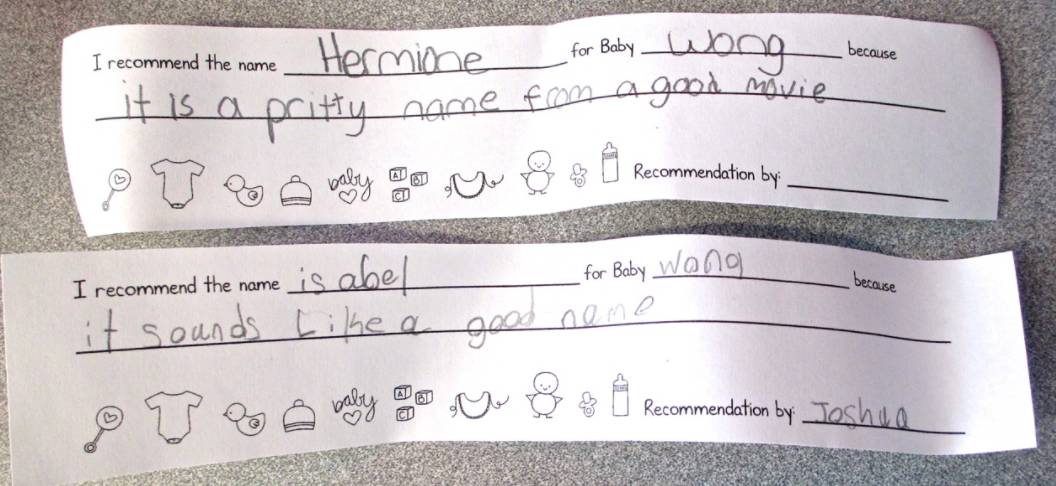 I recommend the name Hermione for Baby Wong because
it is a pritty name from a good movie
baby A B C Recommendation by:
I recommend the name isabel for Baby Wong because
it sounds Like a good name
baby A B C Recommendation by: Joshua